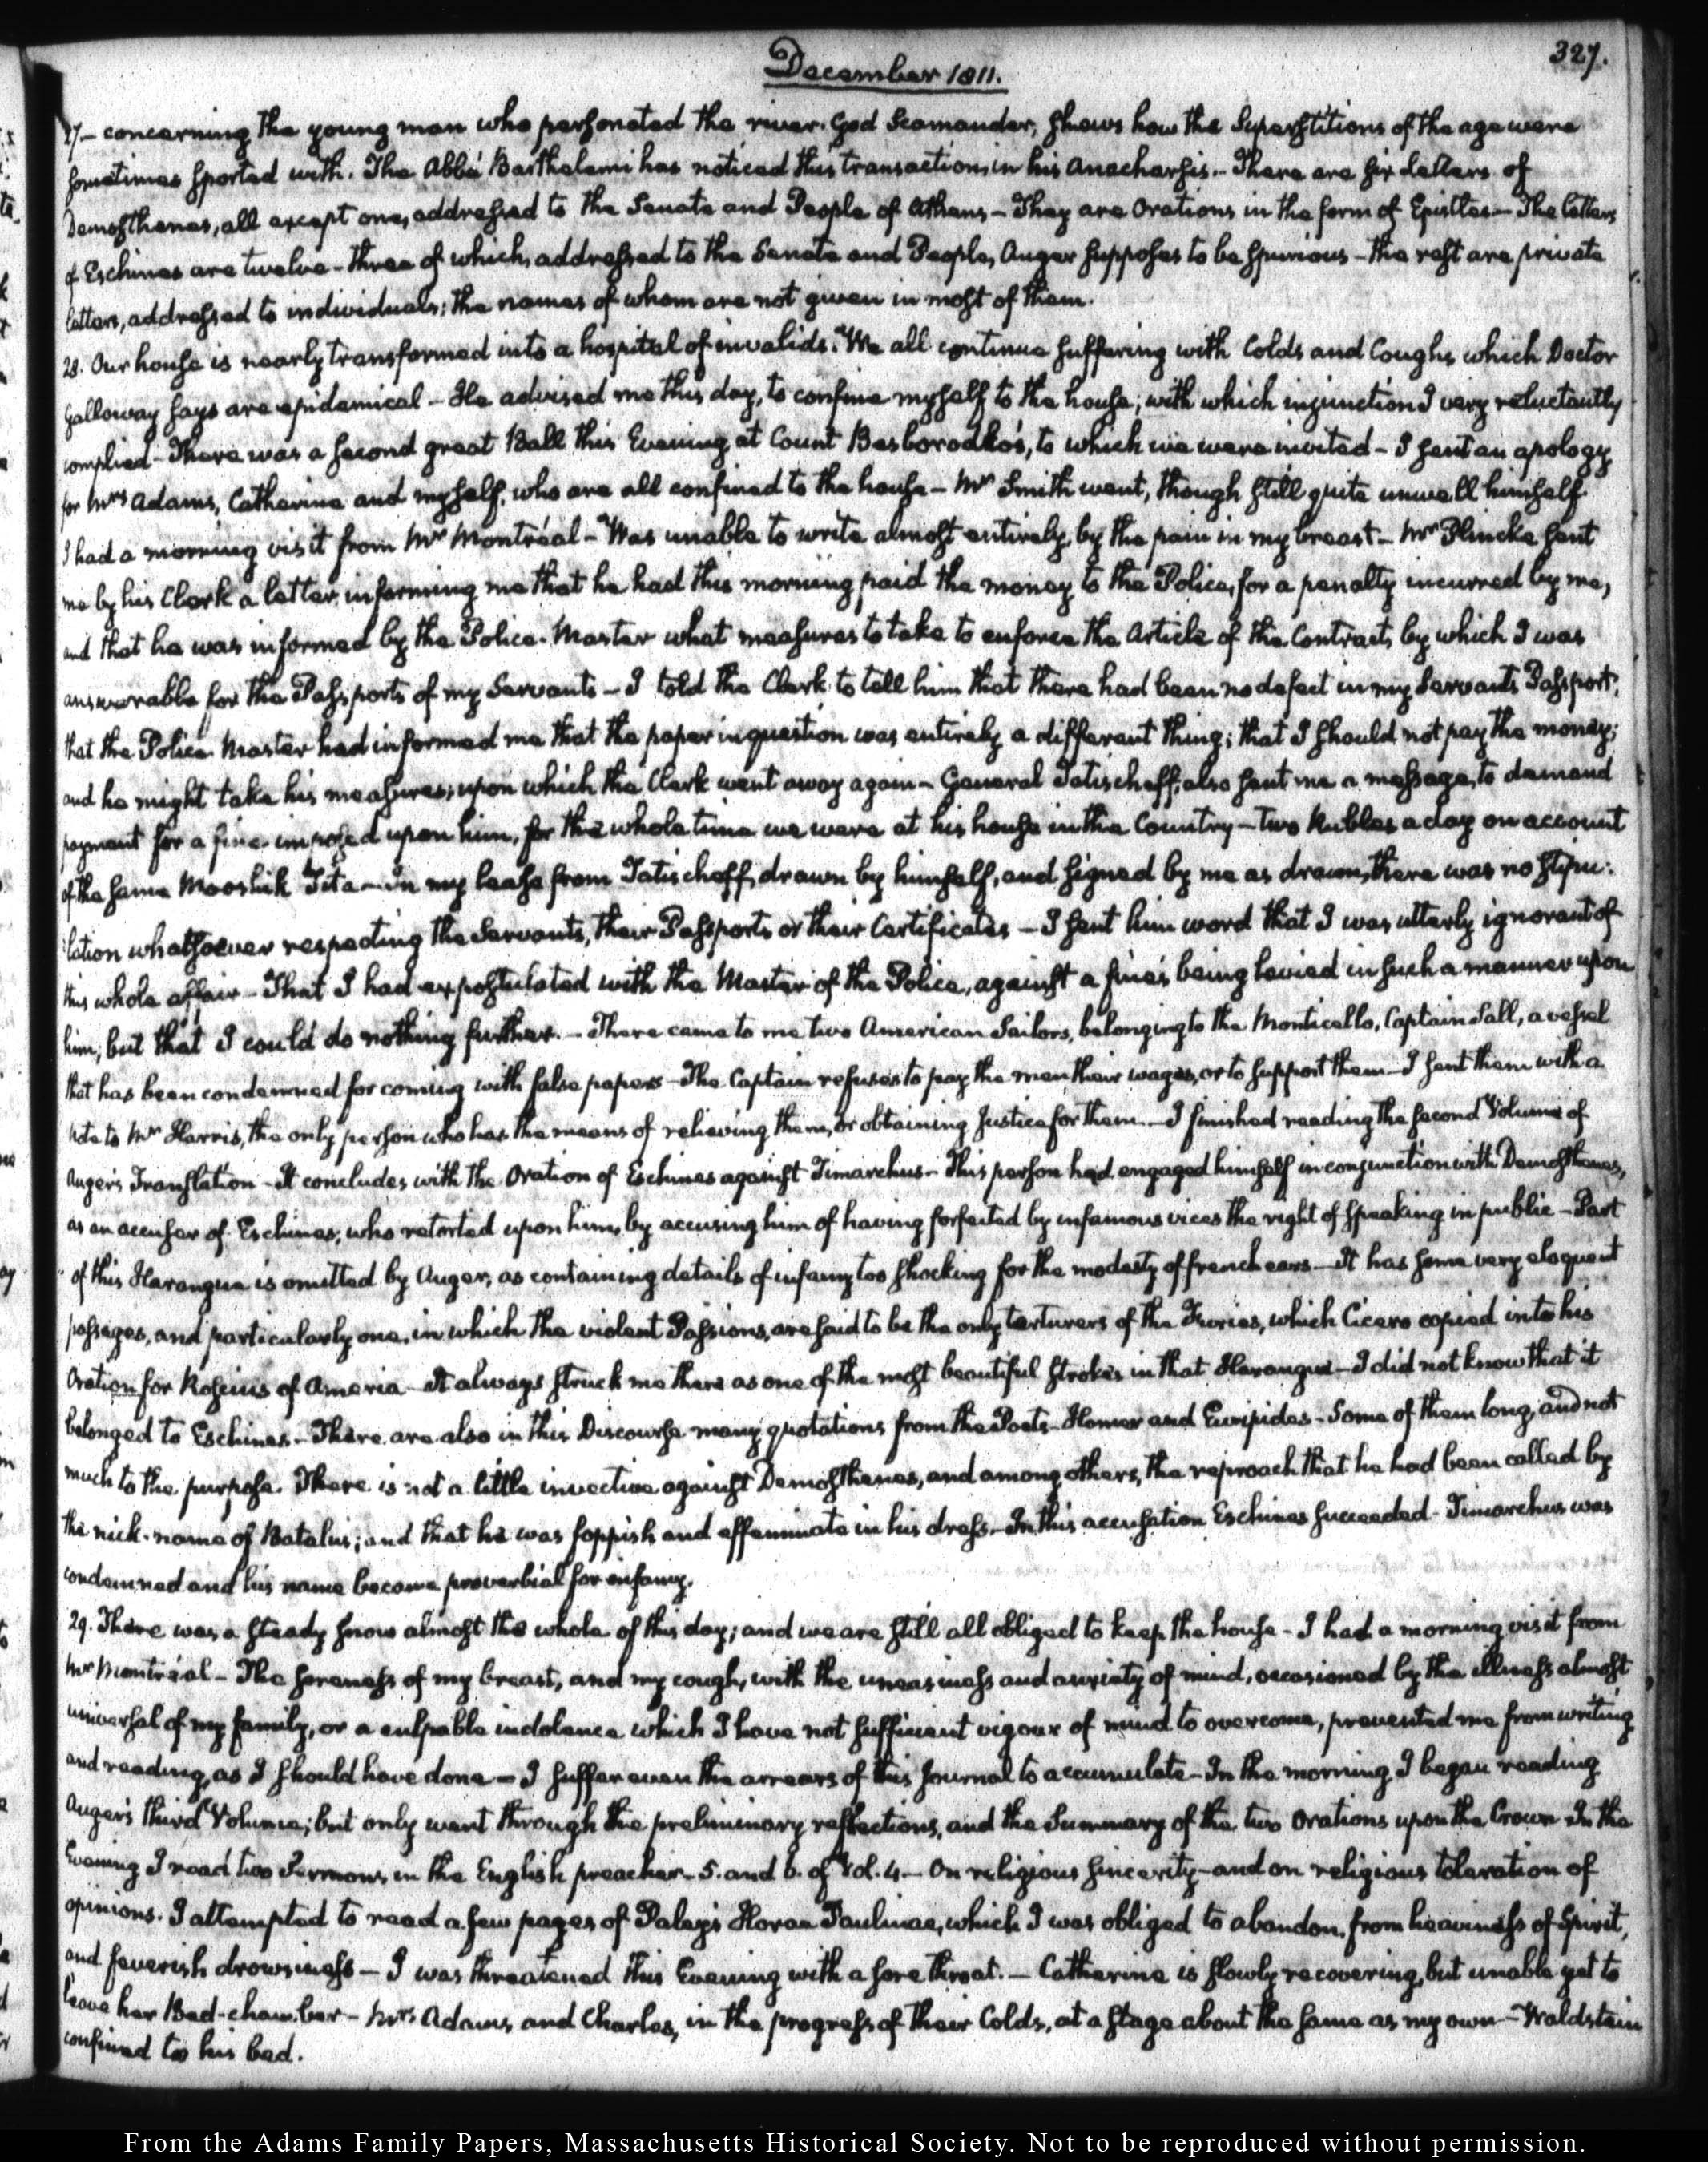 December 1811.
327.
27— concerning the young man who personated the river-God Scamander, shews how the Superstitions of the age were
sometimes sported with. The Abbé Barthelemi has noticed this transaction in his Anacharsis.— There are six letters of
Demosthenes, all except one, addressed to the Senate and People of Athens— They are Orations in the form of Epistles— The letters
of Eschines are twelve— three of which, addressed to the Senate and People, Auger supposes to be spurious— the rest are private
letters, addressed to individuals; the names of whom are not given in most of them.
28. Our house is nearly transformed into a hospital of invalids. We all continue suffering with Colds and Coughs which Doctor
Galloway says are epidemical— He advised me this day, to confine myself to the house; with which injunction I very reluctantly
complied— There was a second great Ball this Evening at Count Besborodko's, to which we were invited— I sent an apology
for Mrs Adams, Catherine and myself, who are all confined to the house— Mr Smith went, though still quite unwell himself.
I had a morning visit from Mr Montréal— Was unable to write almost entirely, by the pain in my breast— Mr Plincke sent
me by his Clerk a letter, informing me that he had this morning paid the money to the Police, for a penalty incurred by me,
and that he was informed by the Police-Master what measures to take to enforce the Article of the Contract, by which I was
answerable for the Passports of my Servants— I told the Clerk to tell him that there had been no defect in my Servants Passport;
that the Police Master had informed me that the paper in question was entirely a different thing; that I should not pay the money;
and he might take his measures; upon which the Clerk went away again— General Tatischeff, also sent me a message, to demand
payment for a fine imposed upon him, for the whole time we were at his house in the Country— two Rubles a day on account
of the same Mooshik Tita— In my lease from Tatischeff, drawn by himself, and signed by me as drawn, there was no stipu-
lation whatsoever respecting the Servants, their Passports or their Certificates— I sent him word that I was utterly ignorant of
this whole affair— That I had expostulated with the Master of the Police, against a fine's being levied in such a manner upon
him; but that I could do nothing further.— There came to me two American Sailors, belonging to the Monticello, Captain Sall, a vessel
that has been condemned for coming with false papers— The Captain refuses to pay the men their wages, or to support them— I sent them with a
note to Mr Harris, the only person who has the means of relieving them, or obtaining Justice for them.— I finished reading the second Volume of
Auger's Translation— It concludes with the Oration of Eschines against Timarchus— This person had engaged himself in conjunction with Demosthenes,
as an accuser of Eschines; who retorted upon him, by accusing him of having forfeited by infamous vices the right of speaking in public— Part
of this Harangue is omitted by Auger, as containing details of infamy too shocking for the modesty of french ears— It has some very eloquent
passages, and particularly one, in which the violent Passions, are said to be the only torturers of the Furies, which Cicero copied into his
Oration for Roscius of Ameria— It always struck me there as one of the most beautiful strokes in that Harangue— I did not know that it
belonged to Eschines— There are also in this Discourse many quotations from the Poets— Homer and Euripides— Some of them long, and not
much to the purpose. There is not a little invective against Demosthenes, and among others, the reproach that he had been called by
the nick-name of Batalus; and that he was foppish and effeminate in his dress— In this accusation Eschines succeeded— Timarchus was
condemned and his name became proverbial for infamy.
29. There was a steady snow almost the whole of this day; and we are still all obliged to keep the house— I had a morning visit from
Mr Montréal— The soreness of my breast, and my cough, with the uneasiness and anxiety of mind, occasioned by the illness almost
universal of my family, or a culpable indolence which I have not sufficient vigour of mind to overcome, prevented me from writing
and reading, as I should have done— I suffer even the arrears of this Journal to accumulate— In the morning I began reading
Auger's third Volume; but only went through the preliminary reflections, and the Summary of the two Orations upon the Crown— In the
Evening I read two Sermons, in the English preacher— 5. and 6. of Vol. 4.— On religious sincerity— and on religious toleration of
opinions. I attempted to read a few pages of Paley's Horae Paulinae, which I was obliged to abandon, from heaviness of Spirit,
and feverish drowsiness— I was threatened this Evening with a sore throat.— Catherine is slowly recovering, but unable yet to
leave her Bed-chamber— Mrs Adams, and Charles, in the progress of their Colds, at a stage about the same as my own— Waldstein
confined to his bed.
From the Adams Family Papers, Massachusetts Historical Society. Not to be reproduced without permission.